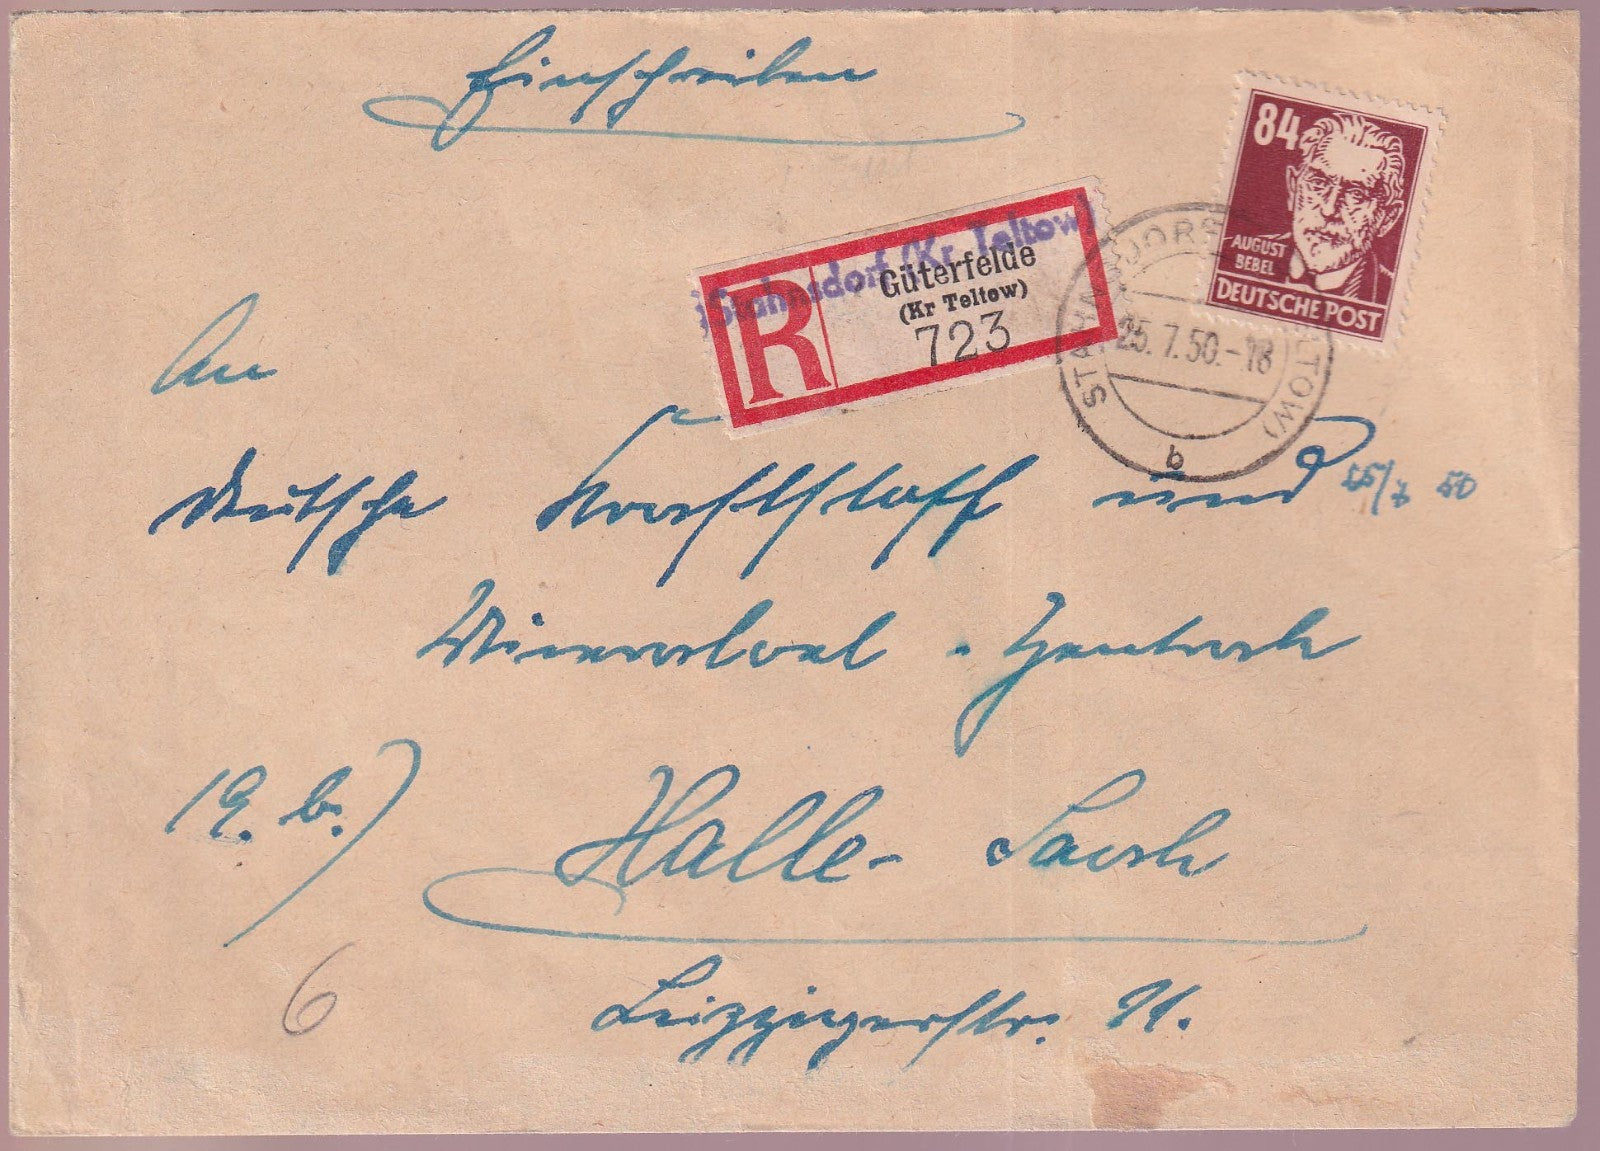 Einschreiben
84
AUGUST
BEBEL
DEUTSCHE POST
Stahnsdorf (Kr Teltow)
R
Güterfelde
(Kr Teltow)
723
STAHNSDORF TELTOW)
25.7.50.-18
b
An
Deutsche Kraftstoff und
25/7 50
Mineraloel - Zentrale
19.b.)
Halle - Saale
6
Leipzigerstr.